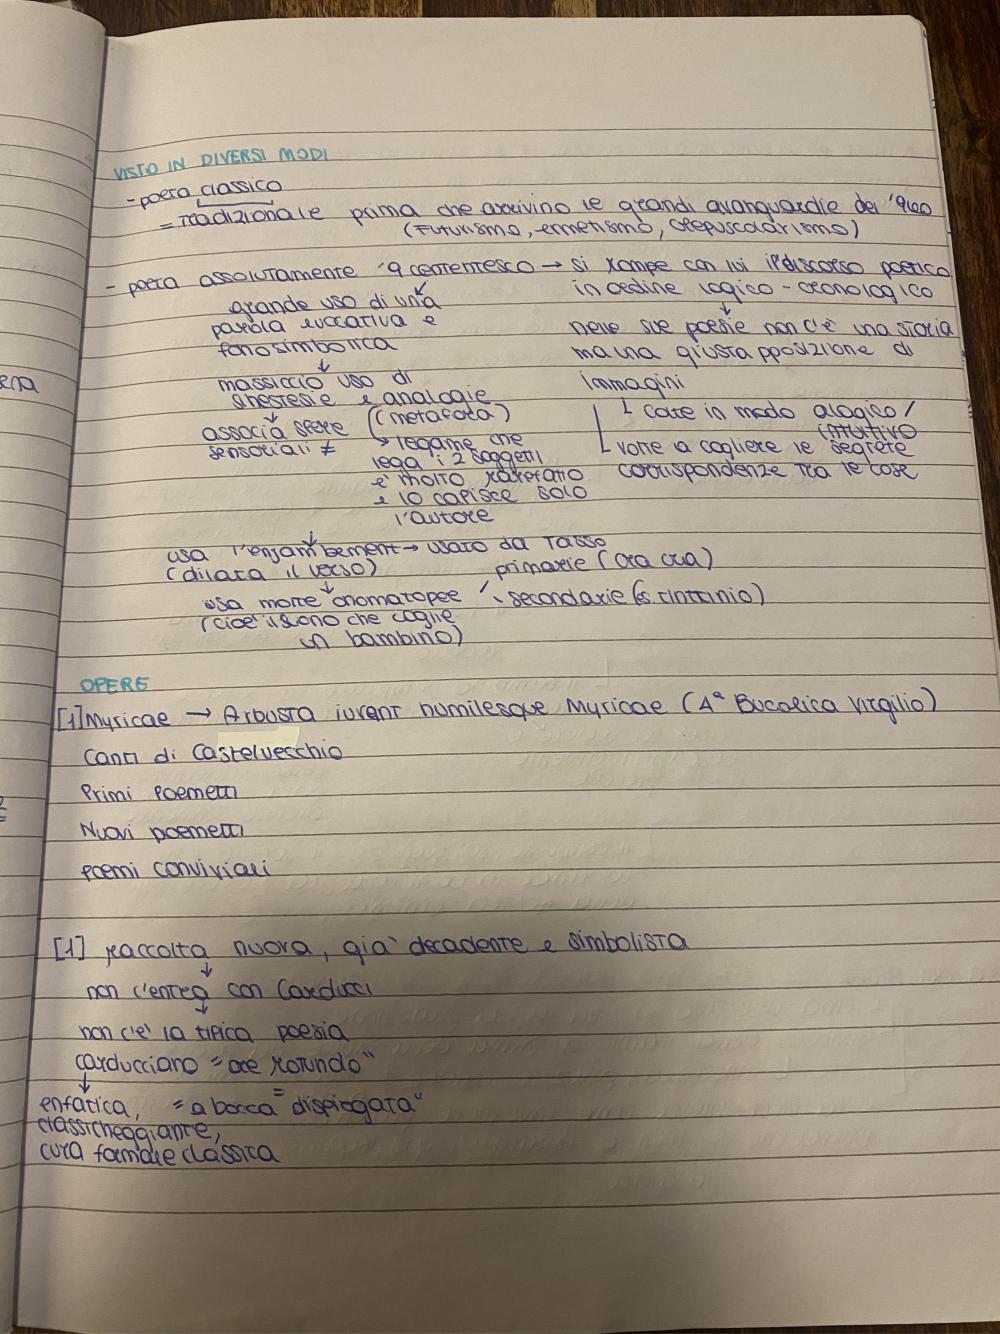 VISTO IN DIVERSI MODI
- poeta classico
= tradizionale prima che arrivino le grandi avanguardie del '900
(Futurismo, ermetismo, crepuscolarismo)
- poeta assolutamente '9cententesco → si rompe con lui il discorso poetico
in ordine logico - cronologico
↙
grande uso di una
parola evocativa e
fonosimbolica
↓
nelle sue poesie non c'è una storia
ma una giusta pposizione di
immagini
↓
massiccio uso di
sinestesie e analogie
(metafora)
↓
associa sfere
sensoriali ≠
↳ legame che
lega i 2 soggetti
e' molto rarefatto
e lo capisce solo
l'autore
↳ colte in modo alogico /
intuitivo
↳ volte a cogliere le segrete
corrispondenze tra le cose
↓
usa l'enjambement → usato da Tasso
(dilata il verso)
↓
usa molte onomatopee
(cioe' il suono che coglie
un bambino)
primarie (cra cra)
secondarie (es tintinnio)
OPERE
[1] Myricae → Arbusta iuvant humilesque Myricae (4ª Bucolica Virgilio)
Canti di Castelvecchio
Primi Poemetti
Nuovi poemetti
poemi conviviali
[1] raccolta nuova, gia' decadente e simbolista
↓
non c'entra con Carducci
↓
non c'e' la tipica poesia
carducciano "ore rotundo"
↓
=
enfatica, "a bocca dispiegata"
classicheggiante,
cura formale classica
ena